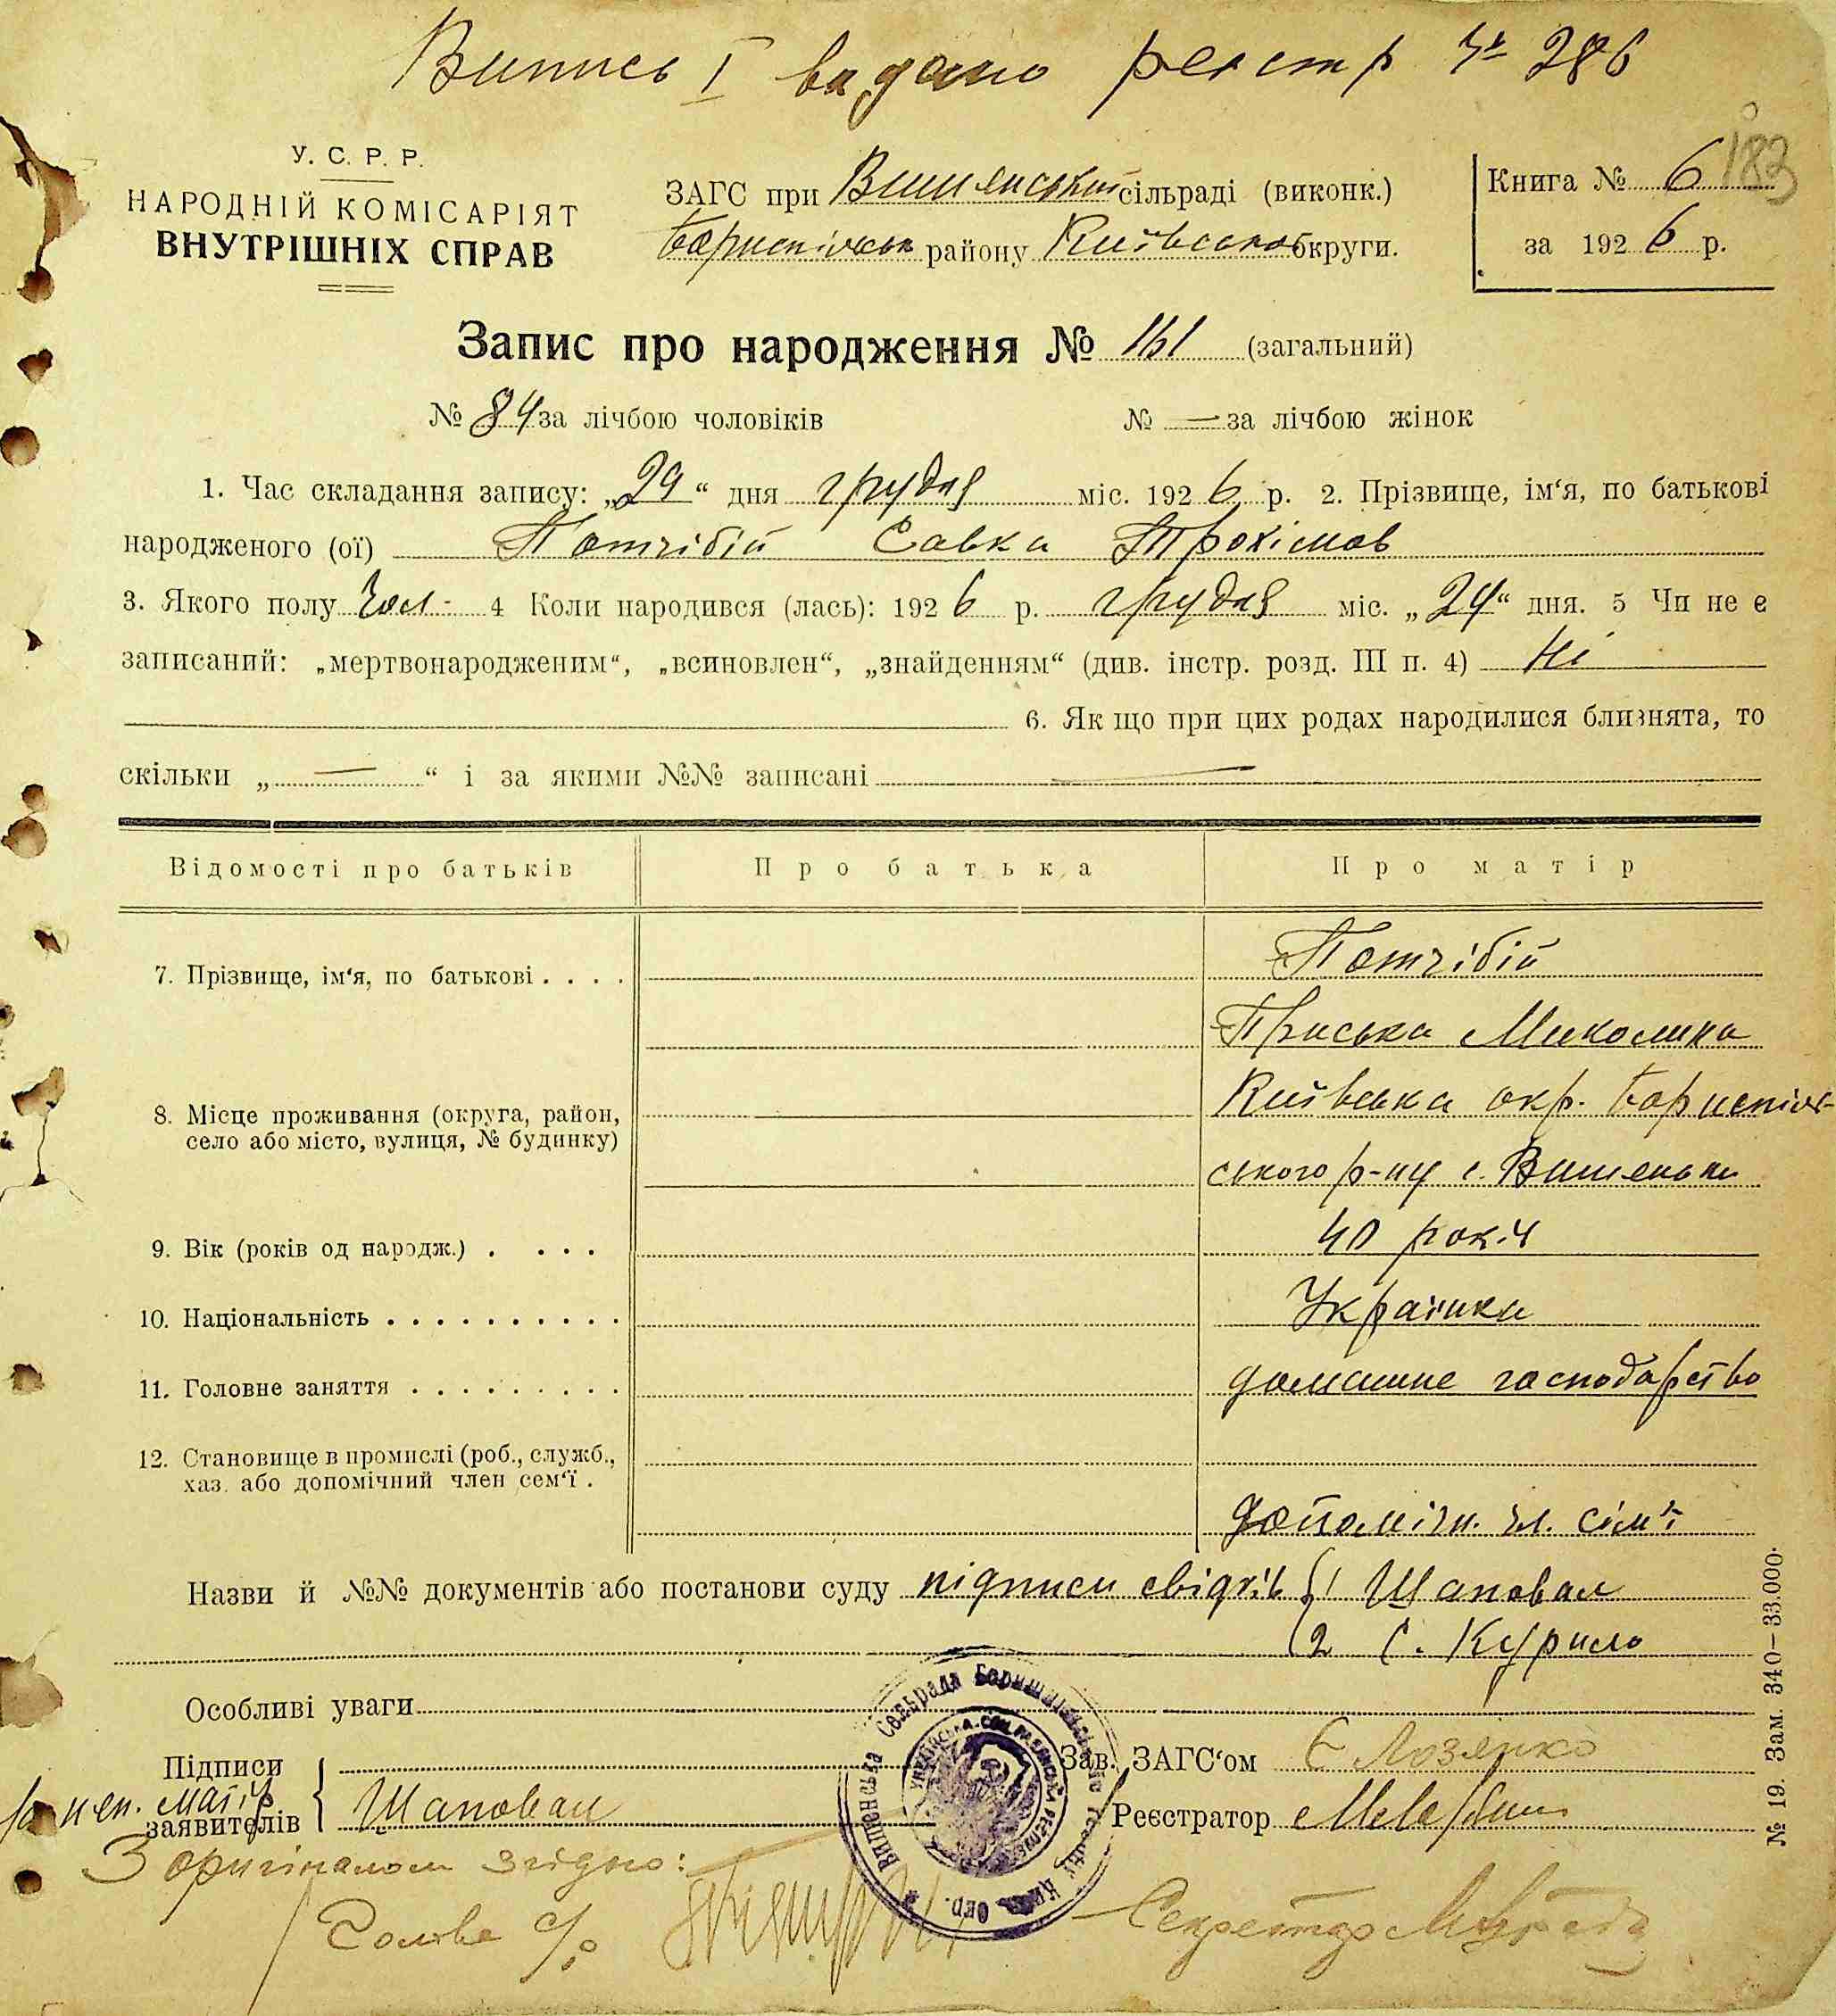 Випись I видано реєстр № 286
183
У. С. Р. Р.
НАРОДНІЙ КОМІСАРІЯТ
ВНУТРІШНІХ СПРАВ
ЗАГС при Вишенський сільраді (виконк.)
Бориспільськ району Київської округи.
Книга № 6
за 1926 р.
Запис про народження № 161 (загальний)
№ 84 за лічбою чоловіків № — за лічбою жінок
1. Час складання запису: „29“ дня грудня міс. 1926 р. 2. Прізвище, ім‘я, по батькові
народженого (ої) Потчібій Савка Трохімов
3. Якого полу Чол- 4 Коли народився (лась): 1926 р. грудня міс. „24“ дня. 5 Чи не є
записаний: „мертвонародженим“, „всиновлен“, „знайденням“ (див. інстр. розд. III п. 4) Ні
6. Як що при цих родах народилися близнята, то
скільки „ — “ і за якими №№ записані —
Відомості про батьків Про батька Про матір
7. Прізвище, ім‘я, по батькові . . . . Потчібій
Приська Миколина
8. Місце проживання (округа, район, Київська окр. Бориспіль-
село або місто, вулиця, № будинку) ського р-ну с. Вишеньки
9. Вік (років од народж.) . . . . 40 років
10. Національність . . . . . . . . . . Українка
11. Головне заняття . . . . . . . . . домашнє господарство
12. Становище в промислі (роб., служб.,
хаз. або допомічний член сем‘ї .
допомічн. чл. сім'ї
Назви й №№ документів або постанови суду підписи свідків { 1 Шаповал
2 С. Курило
Особливі уваги
Підписи
заявителів
за неп. матір Шаповал
Зав. ЗАГС‘ом Є Лозянко
Реєстратор
З оригіналом згідно:
Голова с/р Секретар
№ 19. Зам. 340—33.000.